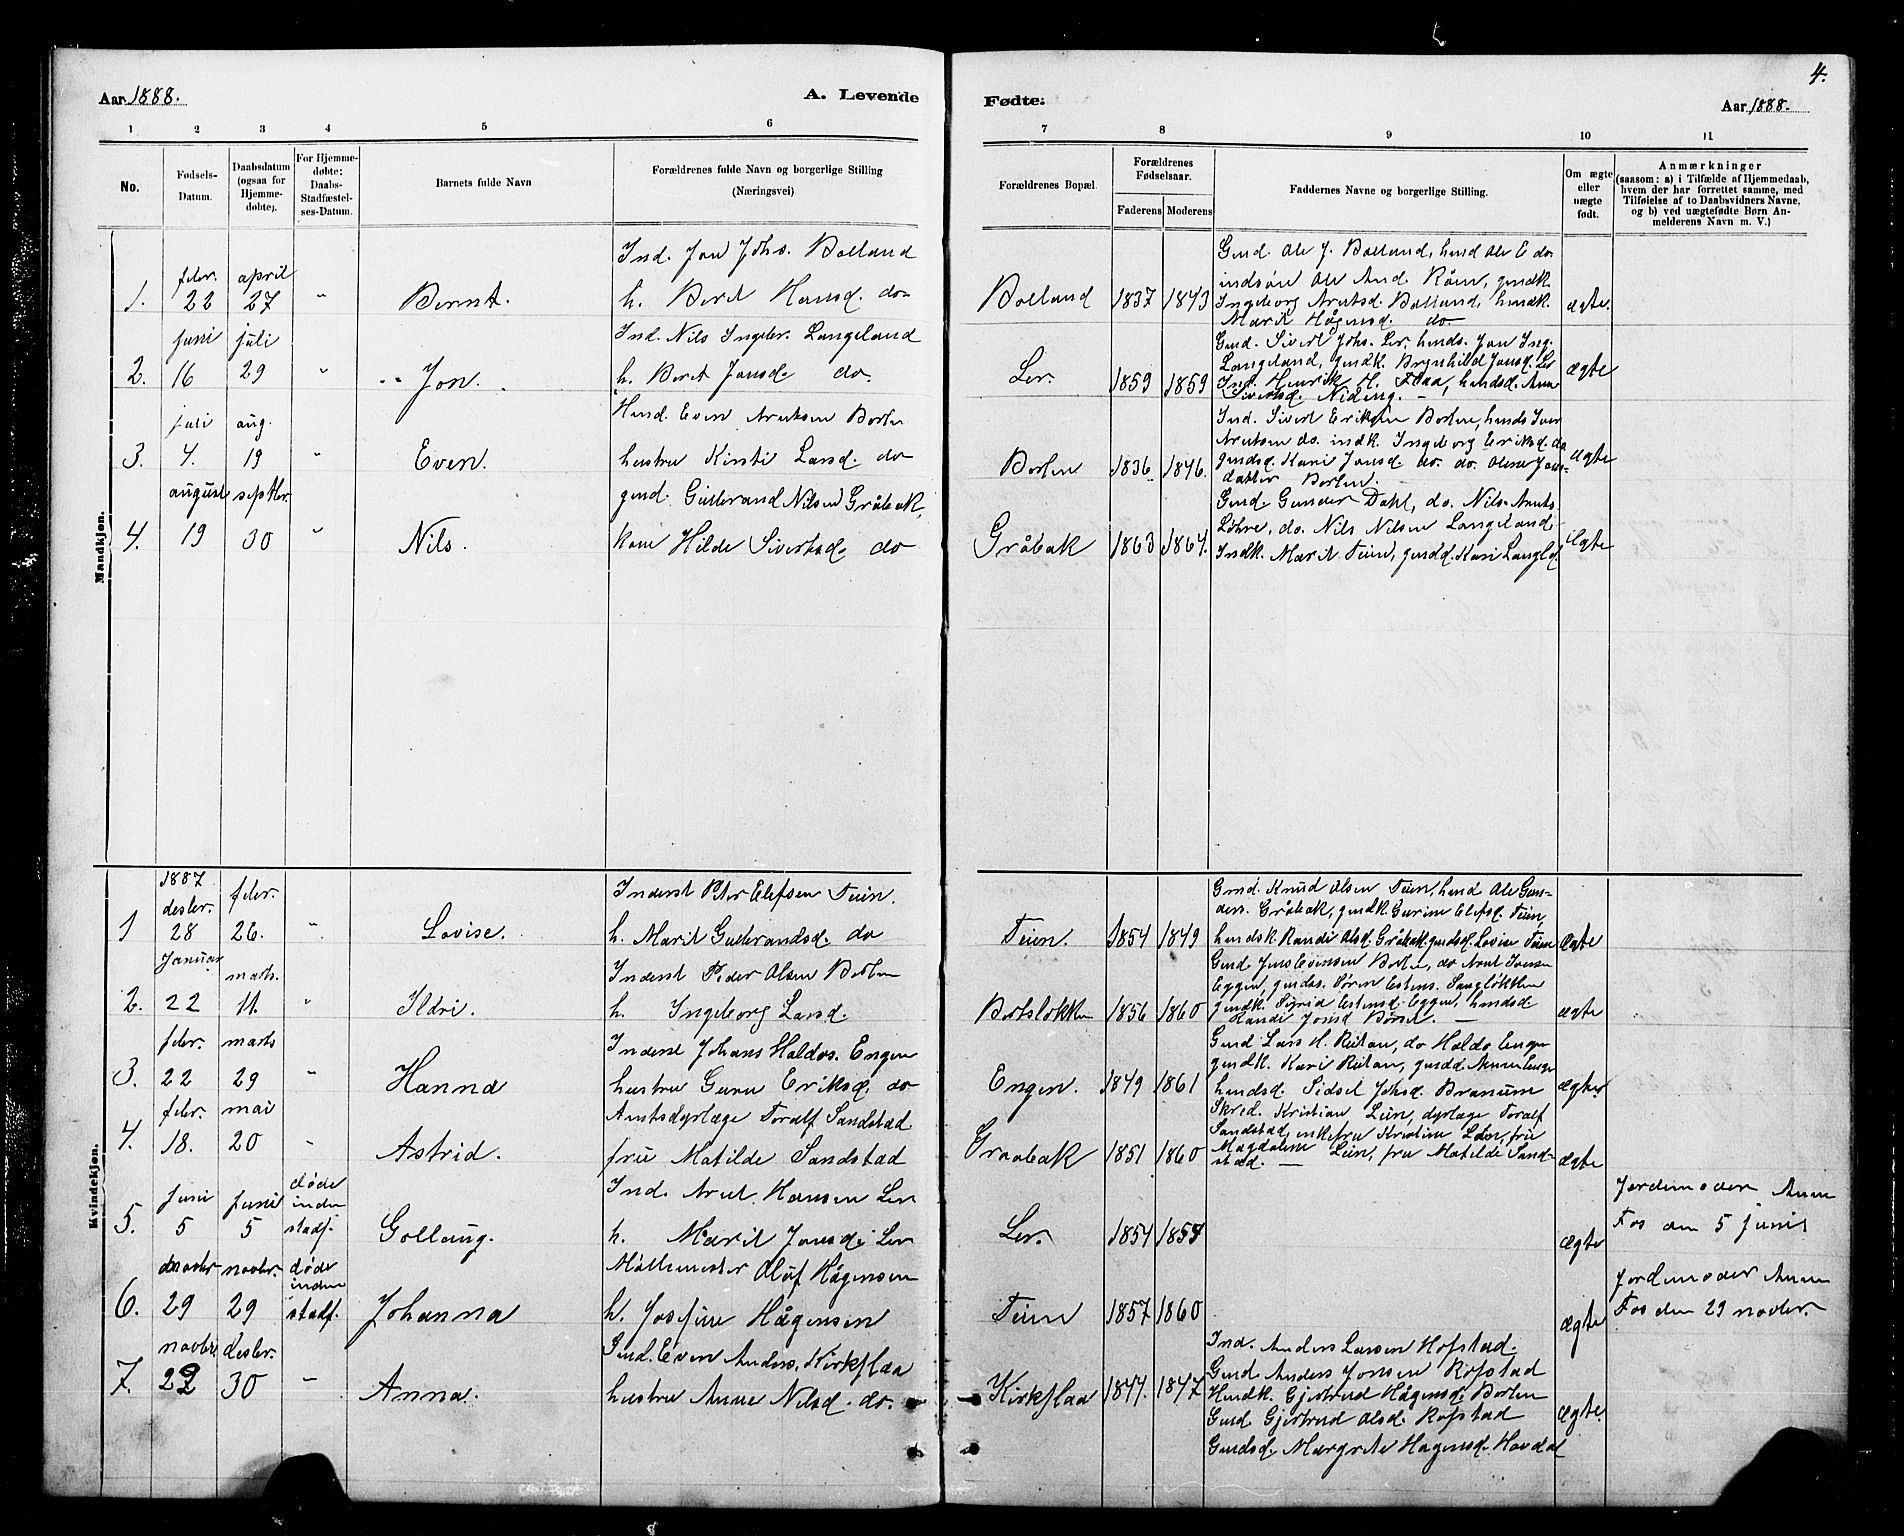 4.
Aar 1888.
A. Levende
Fødte.
Aar 1888.
1 2 3 4 5 6 7 8 9 10 11
No.
Fødsels-Datum.
Daabsdatum (ogsaa for Hjemmedøbte).
For Hjemmedøbte: Daabs-Stadfæstelses-Datum.
Barnets fulde Navn
Forældrenes fulde Navn og borgerlige Stilling (Næringsvei).
Forældrenes Bopæl.
Forældrenes Fødselsaar.
Faderens Moderens
Faddernes Navne og borgerlige Stilling.
Om ægte eller uægte født.
Anmærkninger
(saasom: a) i Tilfælde af Hjemmedaab,
hvem der har forrettet samme, med
Tilføielse af to Daabsvidners Navne,
og b) ved uægtefødte Børn Anmelderens Navn m. V.)
Mandkjøn.
1. febr. 22 april 27 " Bernt.
Ind. Jon Johs. Bolland
h. Beret Hansd. do
Bolland 1837 1843
Gmd. Ole J. Bolland, hmd Ole E do
indsøn Ole And Råen, gmdk.
Ingeborg Arntsd. Bolland, hmdk.
Marit Hågensd. do
ægte.
2. juni 16 juli 29 " Jon.
Ind. Nils Ingebr. Langeland
h. Beret Jonsd. do.
Ler. 1859 1859
Gmd. Sivert Johs. Ler. hmds. Jon Ing.
Langeland, gmdk. Brynhild Jonsd. Ler
Ind. Henrik H. Flaa, hmdsd. Anne
Sivertsd. Niding.
ægte
3. juli 4. aug. 19 " Even.
Hmd. Even Arntsen Borten
hustru Kirsti Larsd. do
Borten 1836 1846.
Ind. Sivert Eriksen Borten, hmds Iver
Arntsen do. indk. Ingeborg Eriksd. do
gmdsd. Kari Jonsd. do. do. Olene Jons-
datter Borten.
ægte
4. august 19 septbr. 30 " Nils.
gmd. Gulbrand Nilsen Gråbak,
kone Hilde Sivertsd. do
Gråbak 1863 1864.
Gmd. Gunder Dahl, do. Nils Arnts.
Løhre, do. Nils Nilsen Langeland
Indk. Marit Teien, gmdd. Kari Langld.
ægte
Kvindekjøn.
1 1887 desbr. 28 febr. 26. " Lovise.
Inderst Peter Elefsen Teien.
h. Marit Gulbrandsd. do
Teien. 1854 1849
Gmd. Knud Olsen Teien, hmd Ole Gun-
ders. Gråbak, gmdk. Gurine Elefsd. Teien,
hmdsk. Randi Olsd. Gråbak, gmdsd. Lovise Teien
ægte
2. Januar 22 marts. 11. " Ildri.
Inderst Peder Olsen Borten
h. Ingeborg Larsd.
Bortsløkken 1856 1860
Gmd Jens Evensen Borten, do Arnt Iversen
Eggen, gmdss. Søren Estens. Sangløkken
gmdk. Sigrid Estensd. Eggen, hmdsd
Randi Jonsd Børset.
ægte
3. febr. 22 marts 29 " Hanna
Inderst Johans Haldos. Engen
hustru Guru Eriksd. do
Engen. 1849 1861
Gmd Lars H. Reitan, do Haldo Engen
gmdk. Kari Reitan, gmdd. Anne Enge
hmdsd. Sidsel Johsd. Branum
ægte
4. febr. 18. mai 20 " Astrid.
Amtsdyrlæge Toralf Sandstad
fru Matilde Sandstad
Graabak 1851 1860
Skred. Kristian Lien, dyrlæge Toralf
Sandstad, enkefru Kristine Løer, fru
Magdalene Lien, fru Matilde Sand-
stad.
ægte
5. Juni 5 Juni 5 døde inden stadf. Gollaug.
Ind. Arnt Hansen Ler
h. Marit Jonsd. Ler
Ler. 1854 1854
ægte
Jordemoder Anne
Fos den 5 juni
6. novbr 29 novbr. 29 døde inden stadf. Johanna
Møllemester Oluf Hågensen
h. Josefine Hågensen
Teien 1857 1860
ægte
Jordemoder Anne
Fos den 29 novbr.
7. novbr 22 desbr. 30 " Anna.
Gmd. Even Anders. Kirkflaa
hustru Anne Nilsd. do.
Kirkflaa 1844. 1847
Ind. Anders Larsen Hofstad.
Gmd Anders Jonsen Rofstad
Hmdk. Gjertrud Hågensd. Borten
Gmd. Gjertrud Olsd. Rofstad
Gmdsd. Margrete Hagensd. Hovdal
ægte.